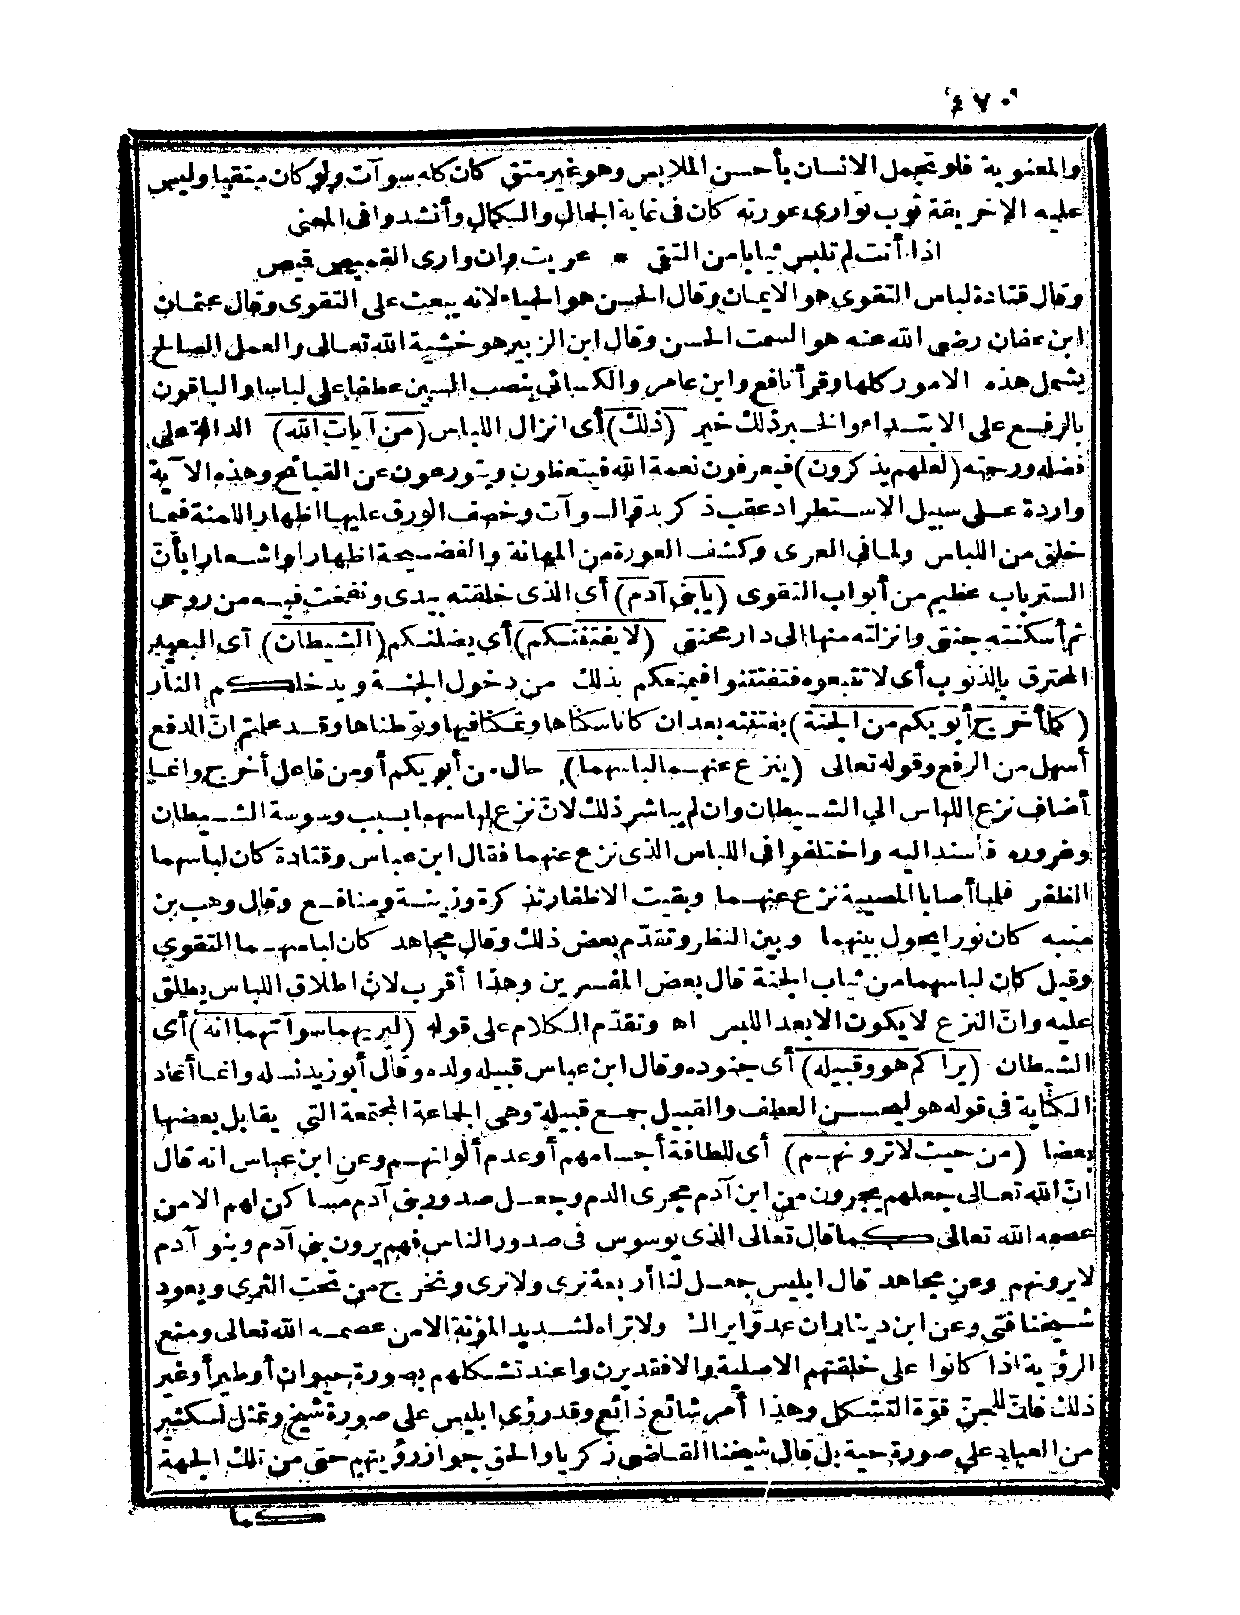 ٤٧٠
والمعنوية فلو تجمل الانسان بأحسن الملابس وهو غير متق كان كله سوآت ولو كان متقيا وليس
عليه الاخريقة ثوب تواری عورته كان فى غاية الجمال والكمال وأنشدوا فى المعنى
اذا أنت لم تلبس ثيابا من التقى * عريت وان وارى القميص قميص
وقال قتادة لباس التقوى هو الايمان وقال الحسن هو الحياء لانه يبعث على التقوى وقال عثمان
ابن عفان رضى الله عنه هو السمت الحسن وقال ابن الزبير هو خشية الله تعالى والعمل الصالح
يشمل هذه الامور كلها وقرأ نافع وابن عامر والكسائى بنصب السين عطفا على لباسا والباقون
بالرفع على الابتداء والخبر ذلك خير (ذلك) أى انزال اللباس (من آيات الله) الدالة على
فضله ورحمته (لعلهم يذكرون) فيعرفون نعمة الله فيتعظون ويتورعون عن القبائح وهذه الآية
واردة على سبيل الاستطراد عقب ذكر بدو السوآت وخصف الورق عليها اظهارا للمنة فيما
خلق من اللباس ولما فى العرى وكشف العورة من المهانة والفضيحة اظهارا واشعارا بأن
الستر باب عظيم من أبواب التقوى (يا بنى آدم) أى الذى خلقته بيدى ونفخت فيه من روحى
ثم أسكنته جنتى وانزلته منها الى دار محنتى (لا يفتننكم) أى يضلنكم (الشيطان) أى البعيد
المحترق بالذنوب أى لا تتبعوه فتفتتنوا فيمنعكم بذلك من دخول الجنة ويدخلكم النار
(كما أخرج أبويكم من الجنة) بفتنته بعد ان كانا سكاها وتمكنا فيها وتوطناها وقد علمتم انّ الدفع
أسهل من الرفع وقوله تعالى (ينزع عنهما لباسهما) حال من أبويكم أو من فاعل أخرج وانما
أضاف نزع اللباس الى الشيطان وان لم يباشر ذلك لانّ نزع لباسهما بسبب وسوسة الشيطان
وغروره فأسند اليه واختلفوا فى اللباس الذى نزع عنهما فقال ابن عباس وقتادة كان لباسهما
الظفر فلما أصابا المصيبة نزع عنهما وبقيت الاظفار تذكرة وزينة ومنافع وقال وهب بن
منبه كان نورا يحول بينهما وبين النظر وتقدّم بعض ذلك وقال مجاهد كان لباسهما التقوى
وقيل كان لباسهما من ثياب الجنة قال بعض المفسرين وهذا أقرب لانّ اطلاق اللباس يطلق
عليه وانّ النزع لا يكون الا بعد اللبس اه وتقدّم الكلام على قوله (ليريهما سوآتهما انه) أى
الشيطان (يراكم هو وقبيله) أى جنوده وقال ابن عباس قبيله ولده وقال أبو زيد نسله وانما أعاد
الكناية فى قوله هو ليحسن العطف والقبيل جمع قبيلة وهى الجماعة المجتمعة التى يقابل بعضها
بعضا (من حيث لا ترونهم) أى للطافة أجسامهم أو عدم ألوانهم وعن ابن عباس انه قال
انّ الله تعالى جعلهم يجرون من ابن آدم مجرى الدم وجعل صدور بنى آدم مساكن لهم الا من
عصمه الله تعالى كما قال تعالى الذى يوسوس فى صدور الناس فهم يرون بنى آدم وبنو آدم
لا يرونهم وعن مجاهد قال ابليس جعل لنا أربعة نرى ولا نرى ونخرج من تحت الثرى ويعود
شيخنا فتى وعن ابن دينار ان عدوّا يراك ولا تراه لشديد المؤنة الا من عصمه الله تعالى ومنع
الرؤية اذا كانوا على خلقتهم الاصلية والا فقد يرن واعند تشكلهم بصورة حيوان أو طير أو غير
ذلك فانّ للجنّ قوّة التشكل وهذا أمر شائع ذائع وقد رؤى ابليس على صورة شيخ وتمثل لكثير
من العباد على صورة حية بل قال شيخنا القاضى زكريا والحق جواز رؤيتهم حتى من تلك الجهة
كما